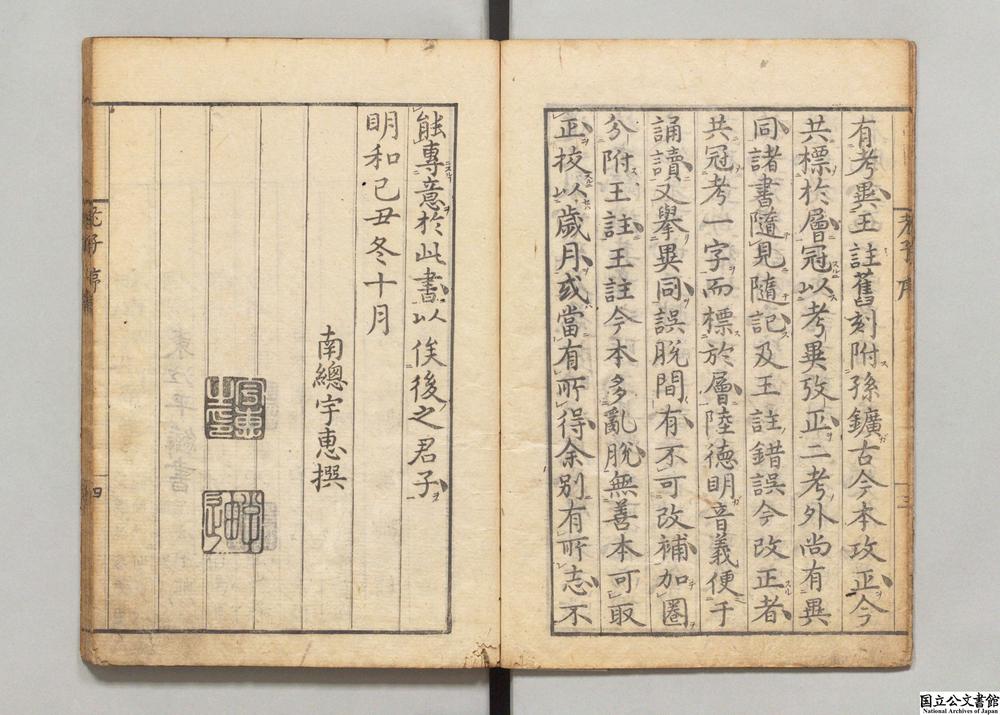 有考異王註舊刻附孫鑛古今本攷正今
共標於層冠以考異攷正二考外尚有異
同諸書隨見隨記及王註錯誤今改正者
共冠考一字而標於層陸德明音義便于
誦讀又擧異同誤脫間有不可改補加圈
分附王註王註今本多亂脫無善本可取
正挍以歲月或當有所得余別有所志不
能專意於此書以俟後之君子
明和己丑冬十月
南總宇惠撰
老子序
三
四
国立公文書館
National Archives of Japan